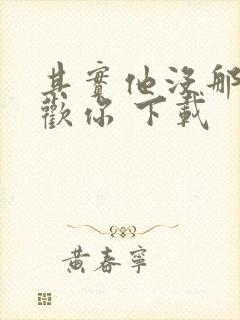 其實他沒那
歡你 下載
黃春寧